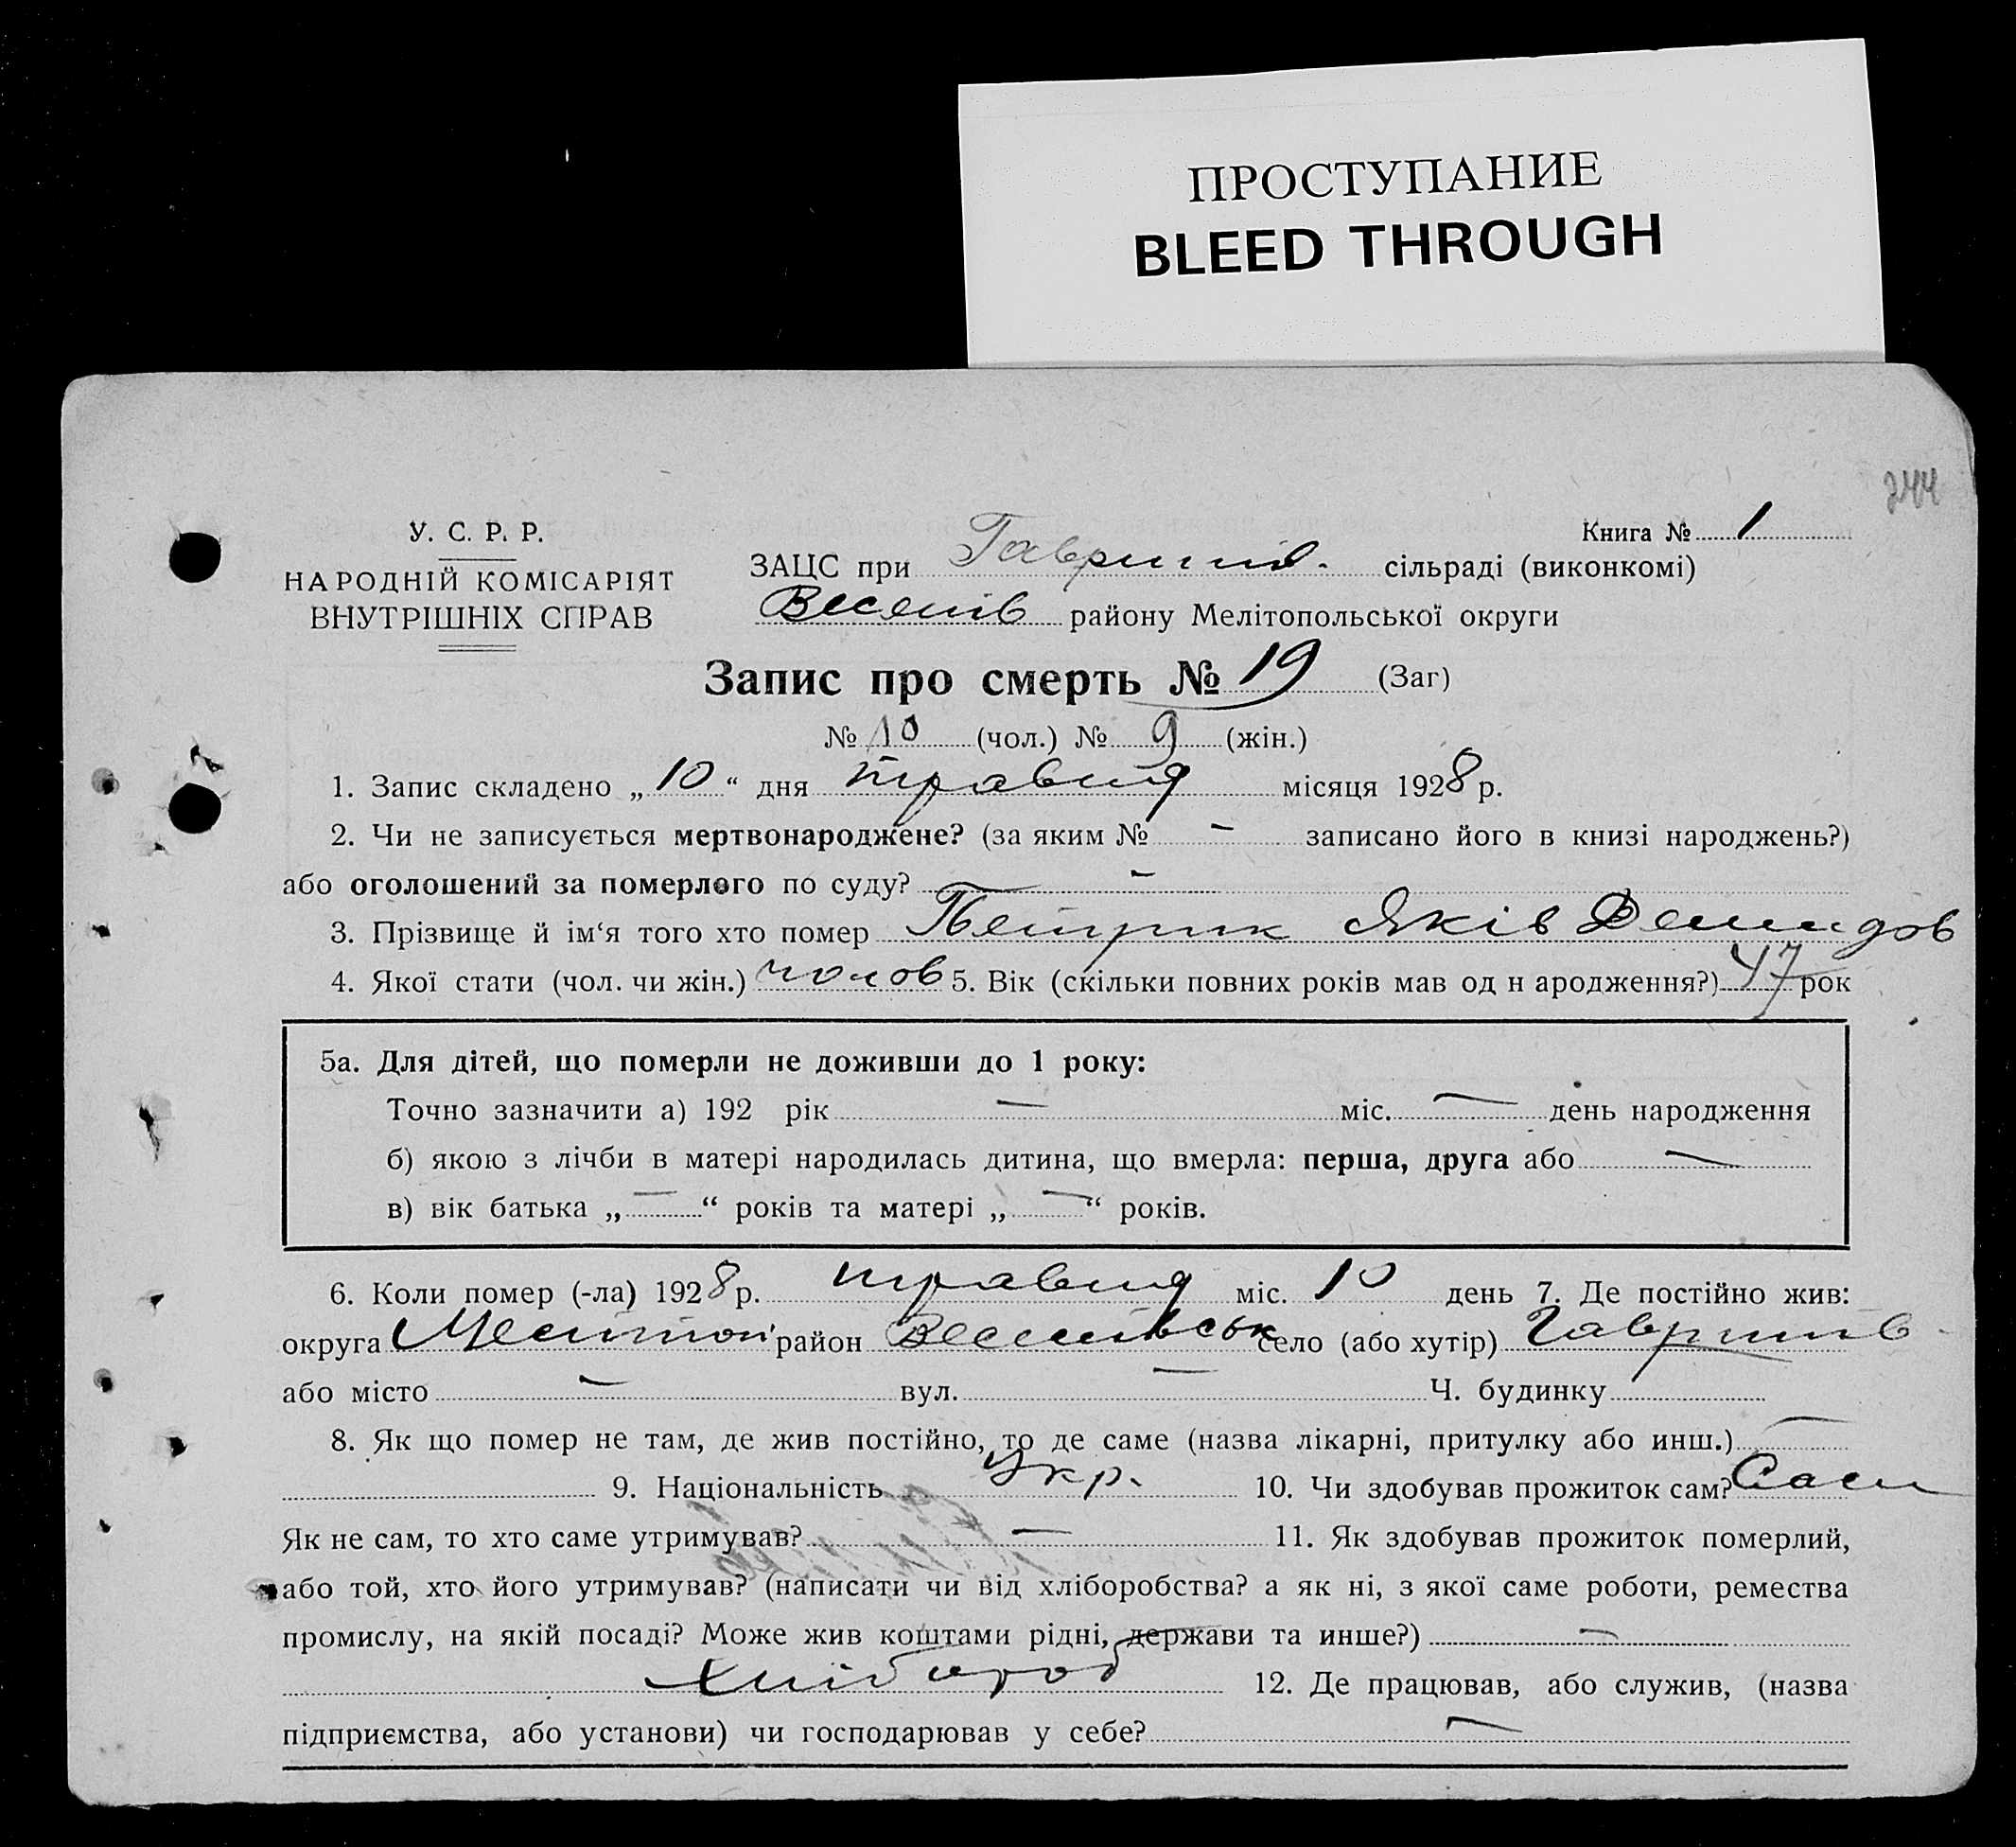 ПРОСТУПАНИЕ
BLEED THROUGH
244
У. С. Р. Р.
Книга № 1
НАРОДНІЙ КОМІСАРІЯТ
ВНУТРІШНІХ СПРАВ
ЗАЦС при Гаврилів. сільраді (виконкомі)
Веселів району Мелітопольської округи
Запис про смерть № 19 (Заг)
№ 10 (чол.) № 9 (жін.)
1. Запис складено „10“ дня травня місяця 1928 р.
2. Чи не записується мертвонароджене? (за яким № — записано його в книзі народжень?)
або оголошений за померлого по суду? —
3. Прізвище й ім‘я того хто помер Петрик Яків Демидов
4. Якої стати (чол. чи жін.) чолов 5. Вік (скільки повних років мав од н ародження?) 47 рок
5а. Для дітей, що померли не доживши до 1 року:
Точно зазначити а) 192 рік — міс. — день народження
б) якою з лічби в матері народилась дитина, що вмерла: перша, друга або —
в) вік батька „—“ років та матері „—“ років.
6. Коли помер (-ла) 1928 р. травня міс. 10 день 7. Де постійно жив:
округа Меліттоп район Веселівськ село (або хутір) Гаврилів
або місто — вул. — Ч. будинку
8. Як що помер не там, де жив постійно, то де саме (назва лікарні, притулку або инш.) —
9. Національність Укр. 10. Чи здобував прожиток сам? Сам
Як не сам, то хто саме утримував? — 11. Як здобував прожиток померлий,
або той, хто його утримував? (написати чи від хліборобства? а як ні, з якої саме роботи, ремества
промислу, на якій посаді? Може жив коштами рідні, держави та инше?) —
хлібороб 12. Де працював, або служив, (назва
підприємства, або установи) чи господарював у себе? —